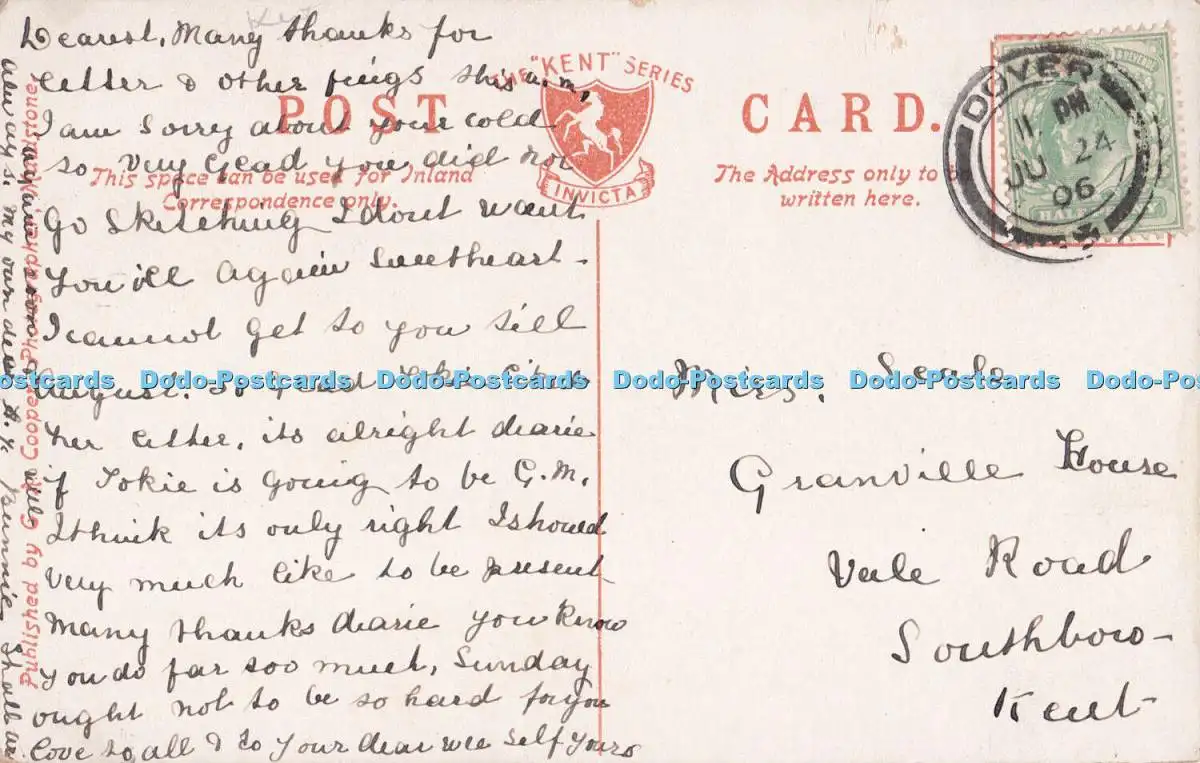 Dearest, Many thanks for
letter & other fings this a.m,
I am sorry about your cold
so very glad you did not
Go Sketching I dont want
You ill again Sweetheart.
I cannot get to you till
August. So glad Tokie liked
her letter, its alright dearie
if Tokie is going to be G.M,
I think its only right I should
very much like to be present
Many thanks dearie you know
you do far too much, Sunday
ought not to be so hard for you
Love to all & to Your dear wee self Yours
always. my own dear
THE "KENT" SERIES
INVICTA
POST CARD.
This space can be used for Inland
Correspondence only.
The Address only to be
written here.
Published by G. Cooper, Photographer, Maidstone
DOVER
11 PM
JU 24
06
Miss. Seale
Granville House
Vale Road
Southboro-
Kent
Dodo-Postcards Dodo-Postcards Dodo-Postcards Dodo-Postcards Dodo-Postcards